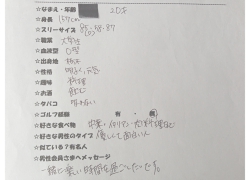 ☆なまえ・年齢　20才
☆身長　157cm
☆スリーサイズ　85・58・87
☆職業　大学生
☆血液型　O型
☆出身地　栃木
☆性格　明るい、元気
☆趣味　料理
☆お酒　飲む
☆タバコ　吸わない
☆ゴルフ経験　有・無
☆好きな食べ物　中華、イタリアン、肉料理など
☆好きな男性のタイプ　優しくて面白い人
☆似ている？有名人
☆男性会員さまへメッセージ
一緒に楽しい時間を過ごしたいです。